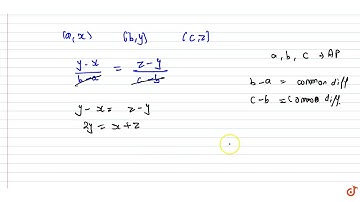 (a,x) (b,y) (c,z)
y-x/b-a = z-y/c-b
y-x = z-y
2y = x+z
a, b, c → AP
b-a = common diff
c-b = common diff.